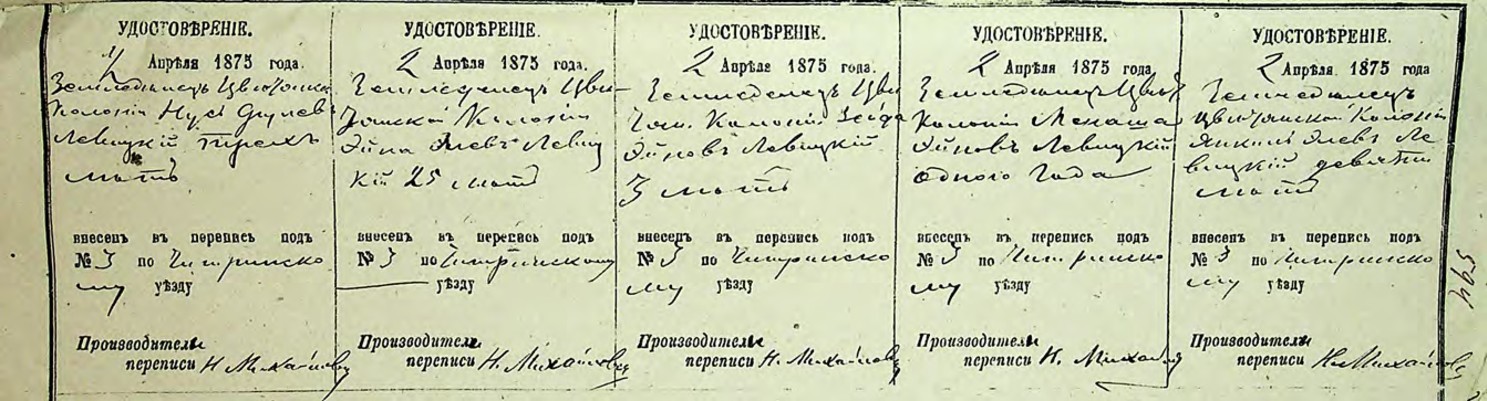 УДОСТОВѢРЕНІЕ.
2 Апрѣля 1875 года.
Земледѣлецъ
Колоніи Левицкій трехъ
лѣтъ
внесенъ въ перепись подъ
№ 3 по Чигринско
му уѣзду
Производитель
переписи Н. Михайловъ
УДОСТОВѢРЕНІЕ.
2 Апрѣля 1875 года.
Земледѣлецъ Цви-
Колоніи
Эйна Левиц
кій 25 лѣтъ
внесенъ въ перепись подъ
№ 3 по Чигринскому
уѣзду
Производитель
переписи Н. Михайловъ
УДОСТОВѢРЕНІЕ.
2 Апрѣля 1875 года.
Земледѣлецъ Цви
Колоніи Зейда
Эйновъ Левицкій
3 лѣтъ
внесенъ въ перепись подъ
№ 3 по Чигринско
му уѣзду
Производитель
переписи Н. Михайловъ
УДОСТОВѢРЕНІЕ.
2 Апрѣля 1875 года
Земледѣлецъ
Колоніи Менаша
Эйновъ Левицкій
одного года
внесенъ въ перепись подъ
№ 3 по Чигринско
му уѣзду
Производитель
переписи Н. Михайловъ
УДОСТОВѢРЕНІЕ.
2 Апрѣля 1875 года
Земледѣлецъ
Колоніи
Янкель Ле
вицкій девяти
лѣтъ
внесенъ въ перепись подъ
№ 3 по Чигринско
му уѣзду
Производитель
переписи Н. Михайловъ
594